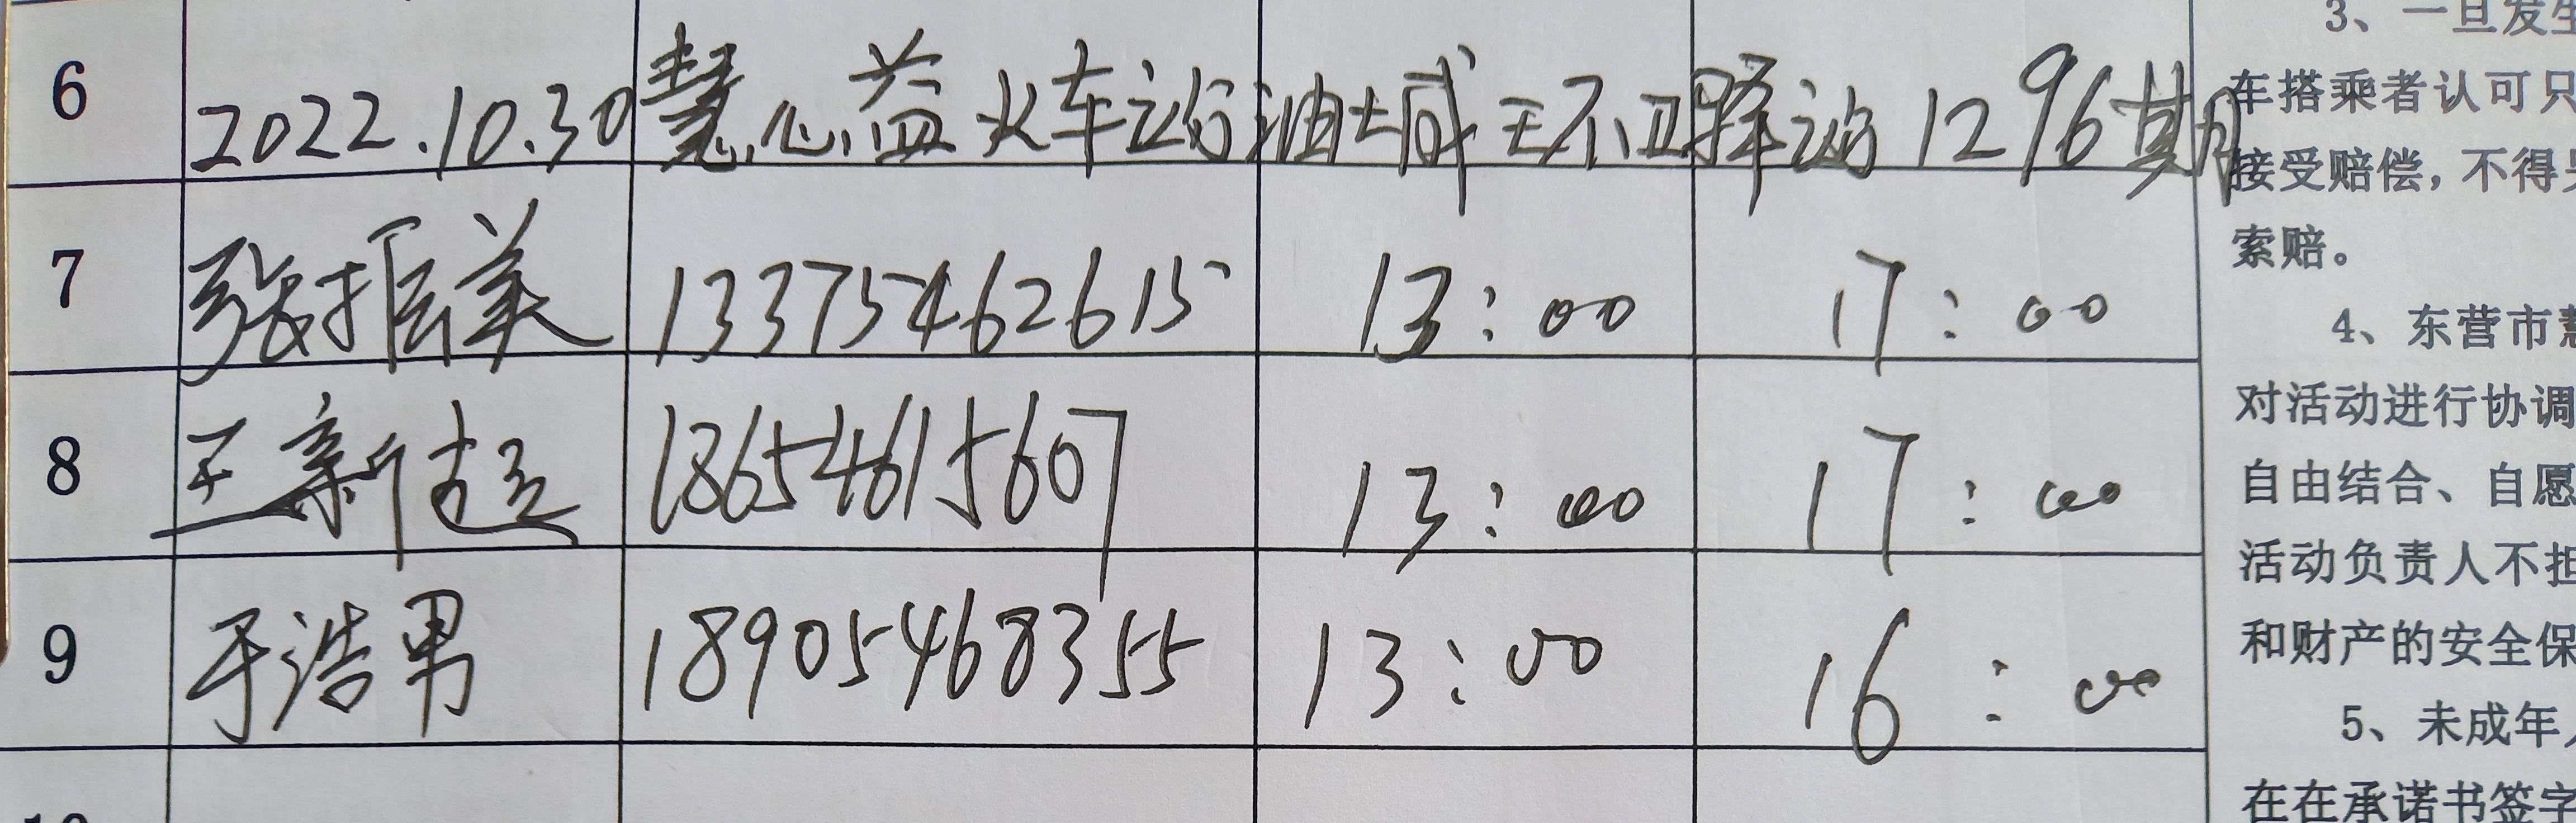 3、一旦发生
6 2022.10.30 慧心益火车站油城环卫驿站1296期
车搭乘者认可只
接受赔偿，不得
7 张振美 13375462615 13:00 17:00
索赔。
4、东营市慧
8 王新建 18654615607 13:00 17:00
对活动进行协调
自由结合、自愿
活动负责人不担
9 于浩男 18905468355 13:00 16:00
和财产的安全保
5、未成年
10
在在承诺书签字